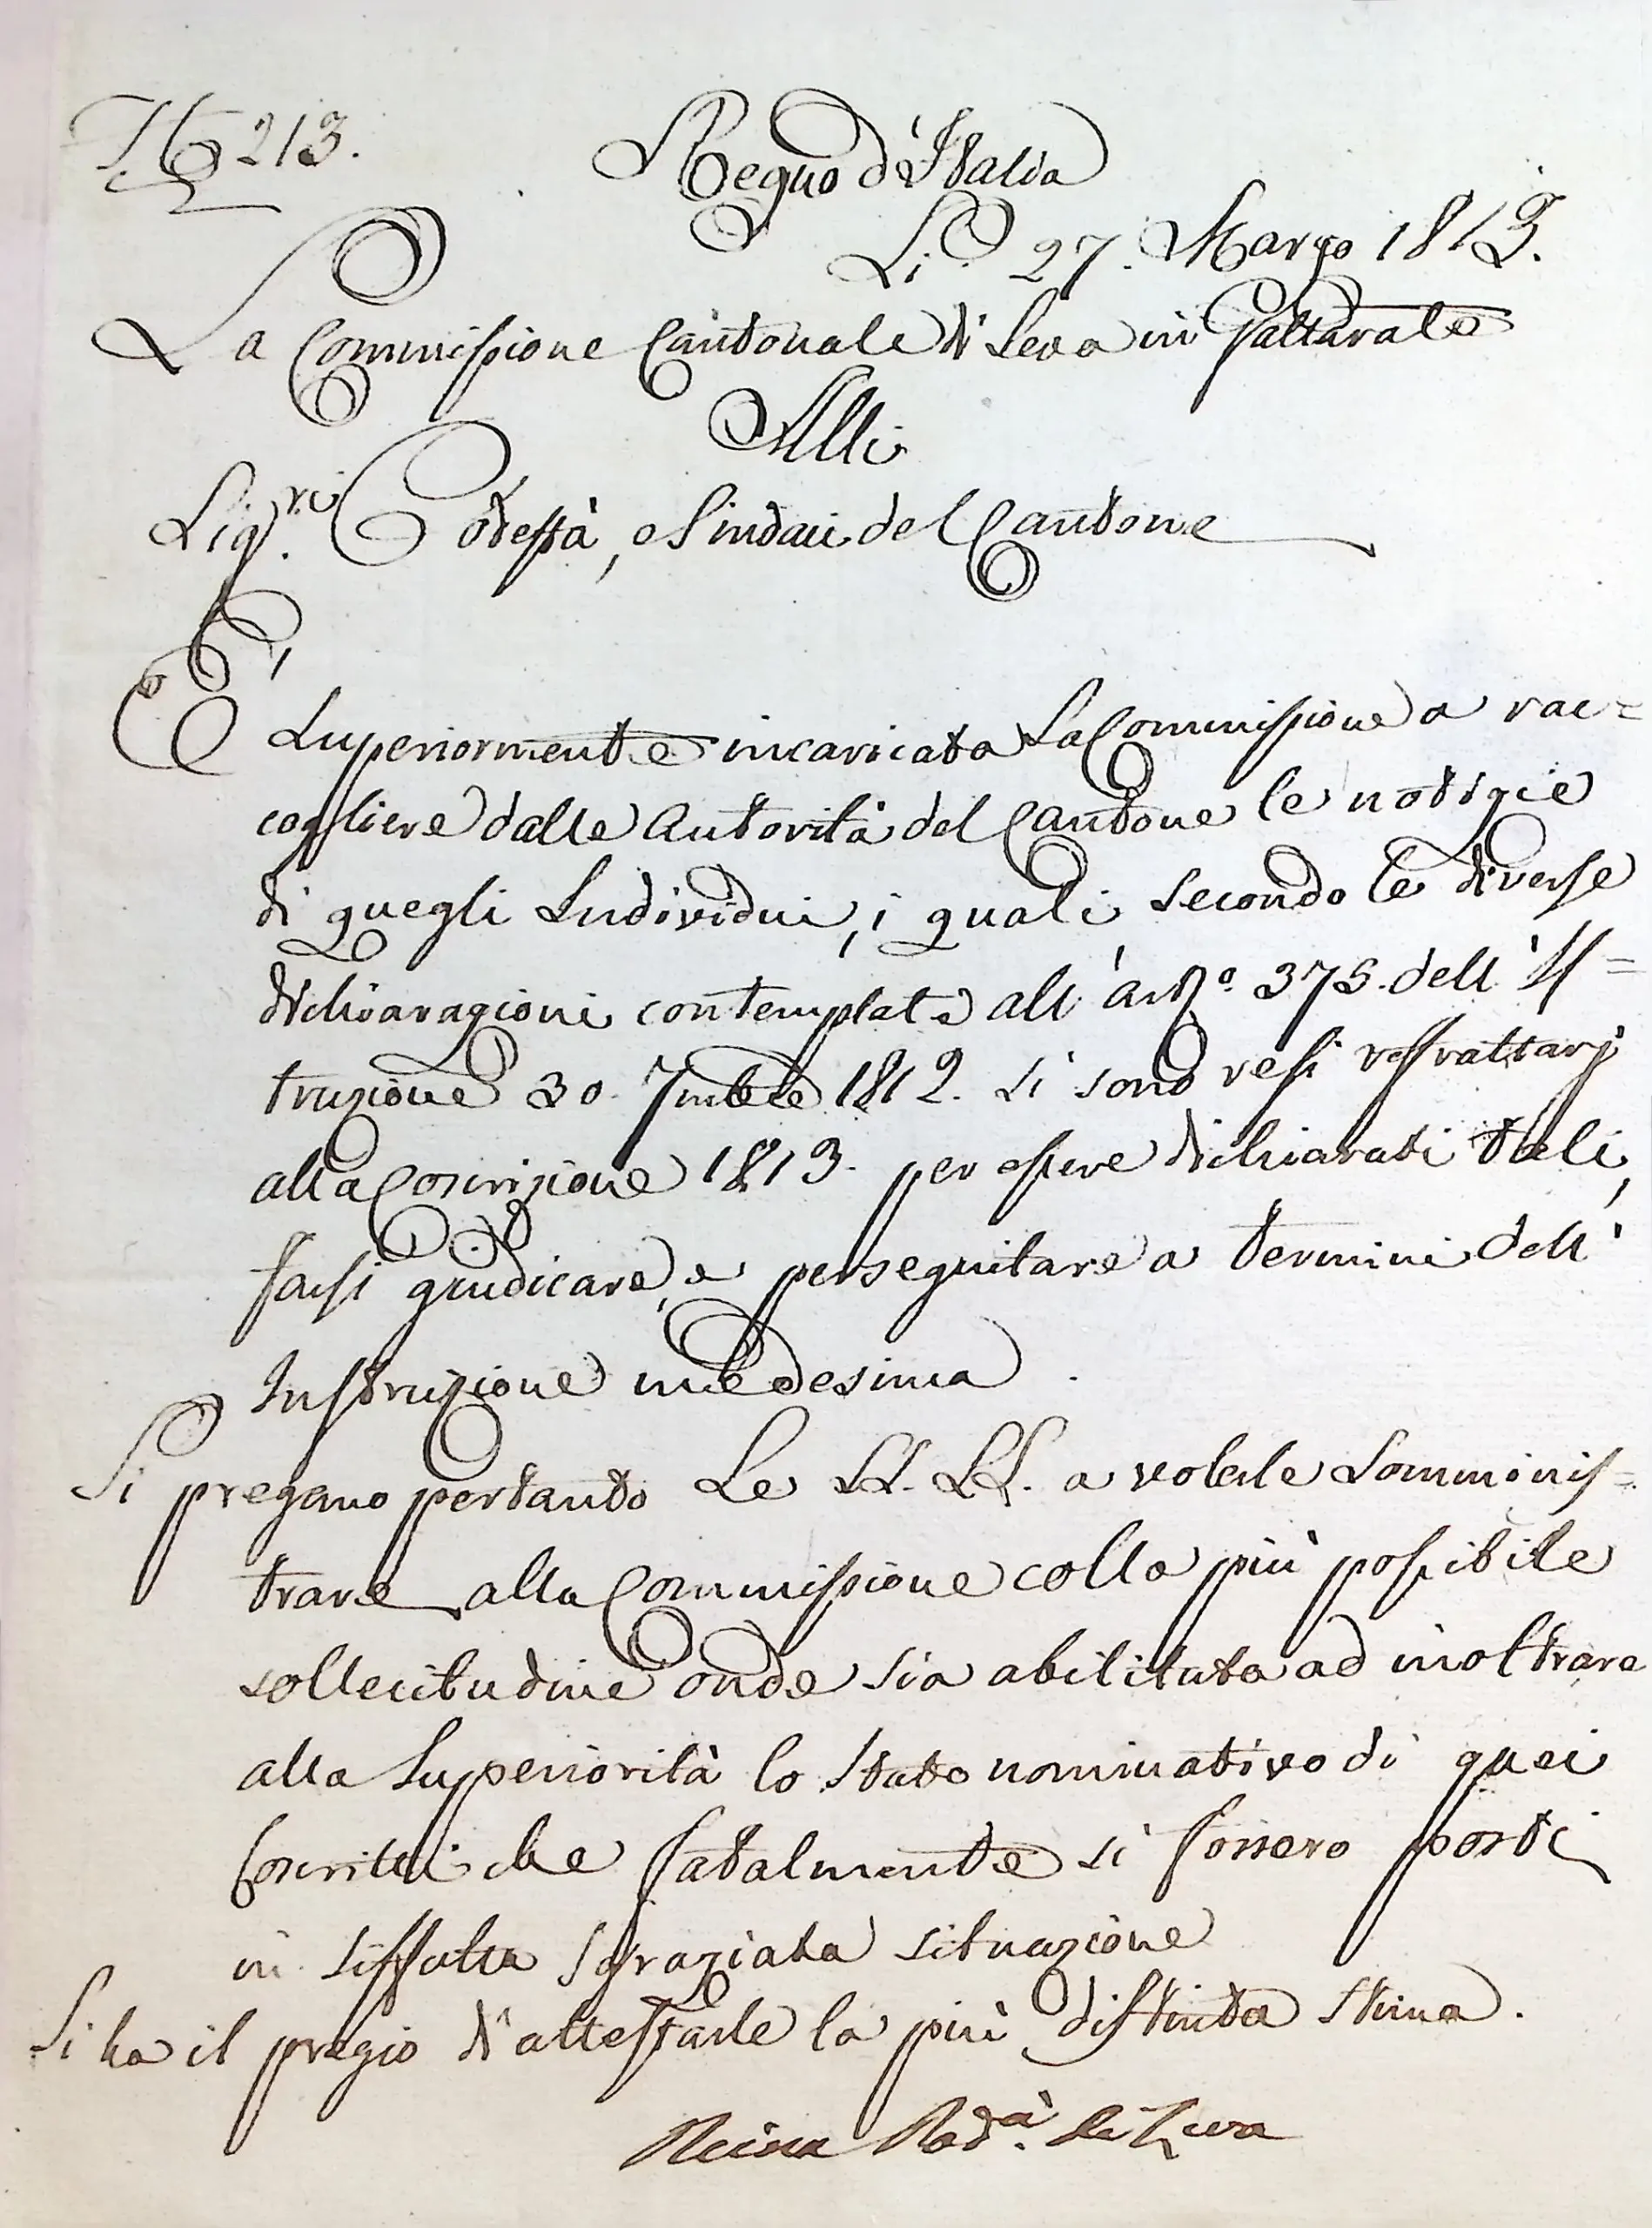 N.º 213.
Regno d'Italia
Li 27. Marzo 1813.
La Commissione Cantonale di Leva in Gallarate
Alli
Sig.ri Podestà, e Sindaci del Cantone
E' Superiormente incaricata La Commissione a rac=
cogliere dalle Autorità del Cantone le notizie
di quegli Individui, i quali secondo le diverse
dichiarazioni contemplate all'art.º 375. dell'Is=
truzione 30. 7mbre 1812. si sono resi refrattarj
alla Coscrizione 1813. per essere dichiarati tali,
farsi giudicare, e perseguitare a termini dell'
Instruzione medesima.
Si pregano pertanto Le SS. LL. a volerle Somminis=
trare alla Commissione colla più possibile
sollecitudine onde sia abilitata ad inoltrare
alla Superiorità lo Stato nominativo di quei
Coscritti che fatalmente si fossero posti
in siffatta sgraziata situazione
Si ha il pregio d'attestarle la più distinta stima.
Reina Pod.à di Leva